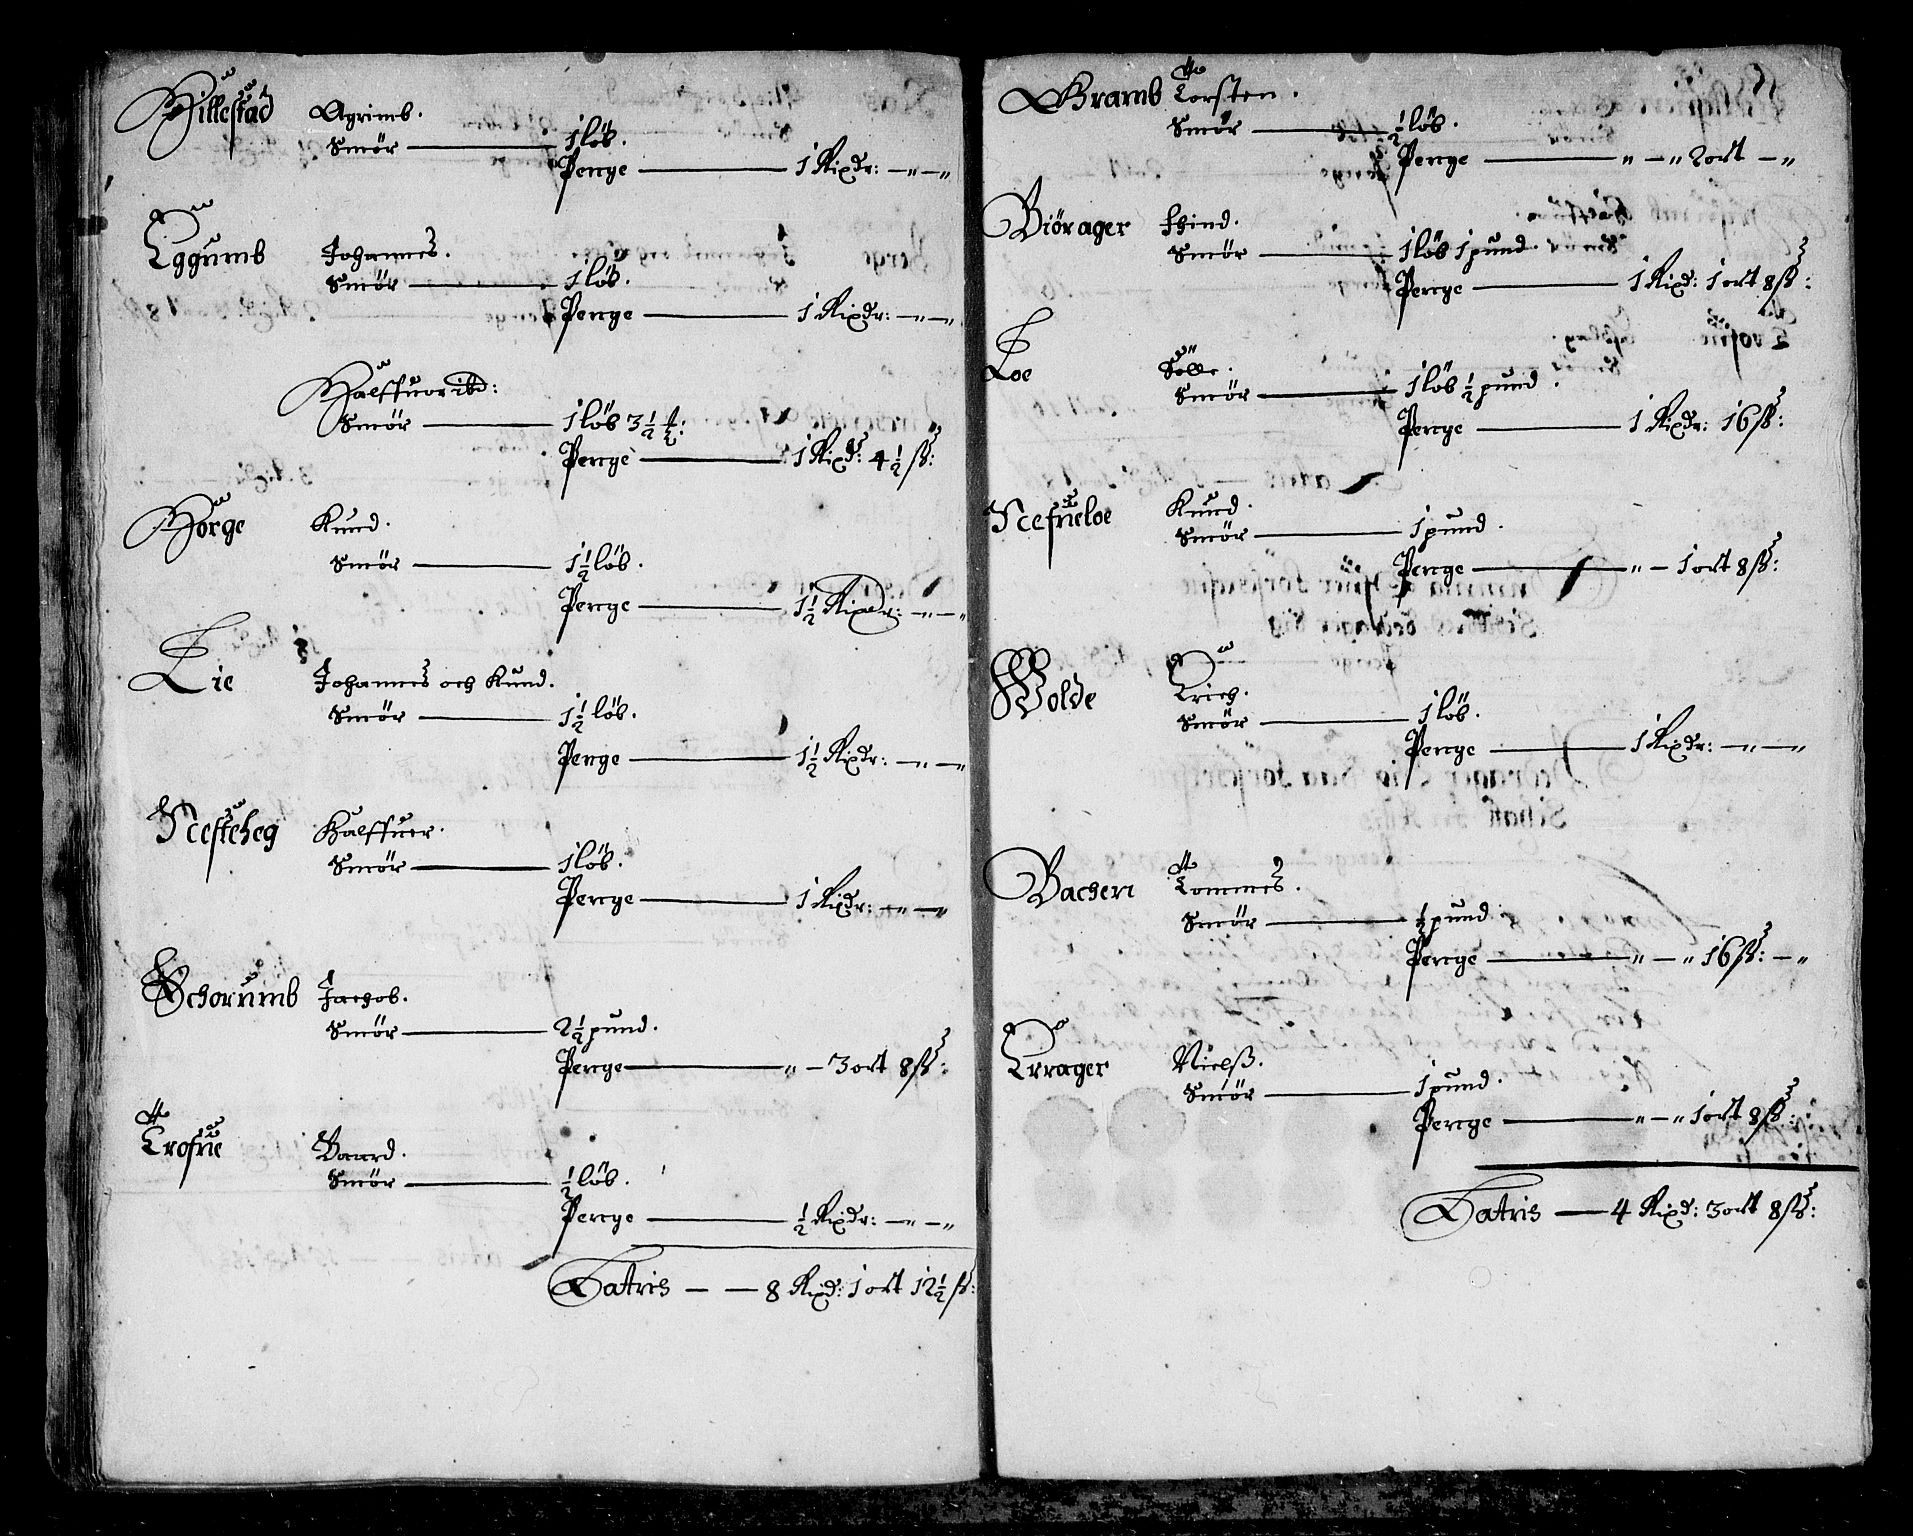 Hillestad Agrimb.
Smör — 1 löb.
Penge — 1 Rixdr: — „ — „
Eggumb Johannes.
Smör — 1 löb.
Penge — 1 Rixdr: — „ — „
Halffuor ibd:
Smör — 1 löb 3½ ℔:
Penge — 1 Rixd: 4½ ß:
Hörge Knud.
Smör — 1½ löb.
Penge — 1½ Rixdr: — „ — „
Lie Johannes och Knud.
Smör — 1½ löb.
Penge — 1½ Rixdr: — „ — „
Nesteheg Halffuer.
Smör — 1 löb.
Penge — 1 Rixdr: — „ — „
Schorumb Jachob.
Smör — 2½ pund.
Penge — „ — 3 ort 8 ß:
Trofne Baard.
Smör — ½ löb.
Penge — ½ Rixdr: — „ — „
Latris — — 8 Rixd: 1 ort 12½ ß:
Bramb Torsten.
Smör — ½ löb.
Penge — „ — „ 2 ort — „
Biörager Ehind.
Smör — 1 löb 1 pund.
Penge — 1 Rixd: 1 ort 8 ß:
Loe Sölle.
Smör — 1 löb ½ pund.
Penge — 1 Rixdr: 16 ß:
Nefrueloe Knud.
Smör — 1 pund.
Penge — „ — 1 ort 8 ß:
Wolde Erich.
Smör — 1 löb.
Penge — 1 Rixdr: — „ — „
Bachen Tommes.
Smör — ½ pund
Penge — „ — „ 16 ß: — „
Errager Nielß.
Smör — 1 pund.
Penge — „ — „ 1 ort 8 ß:
Latris — 4 Rixd: 3 ort 8 ß: